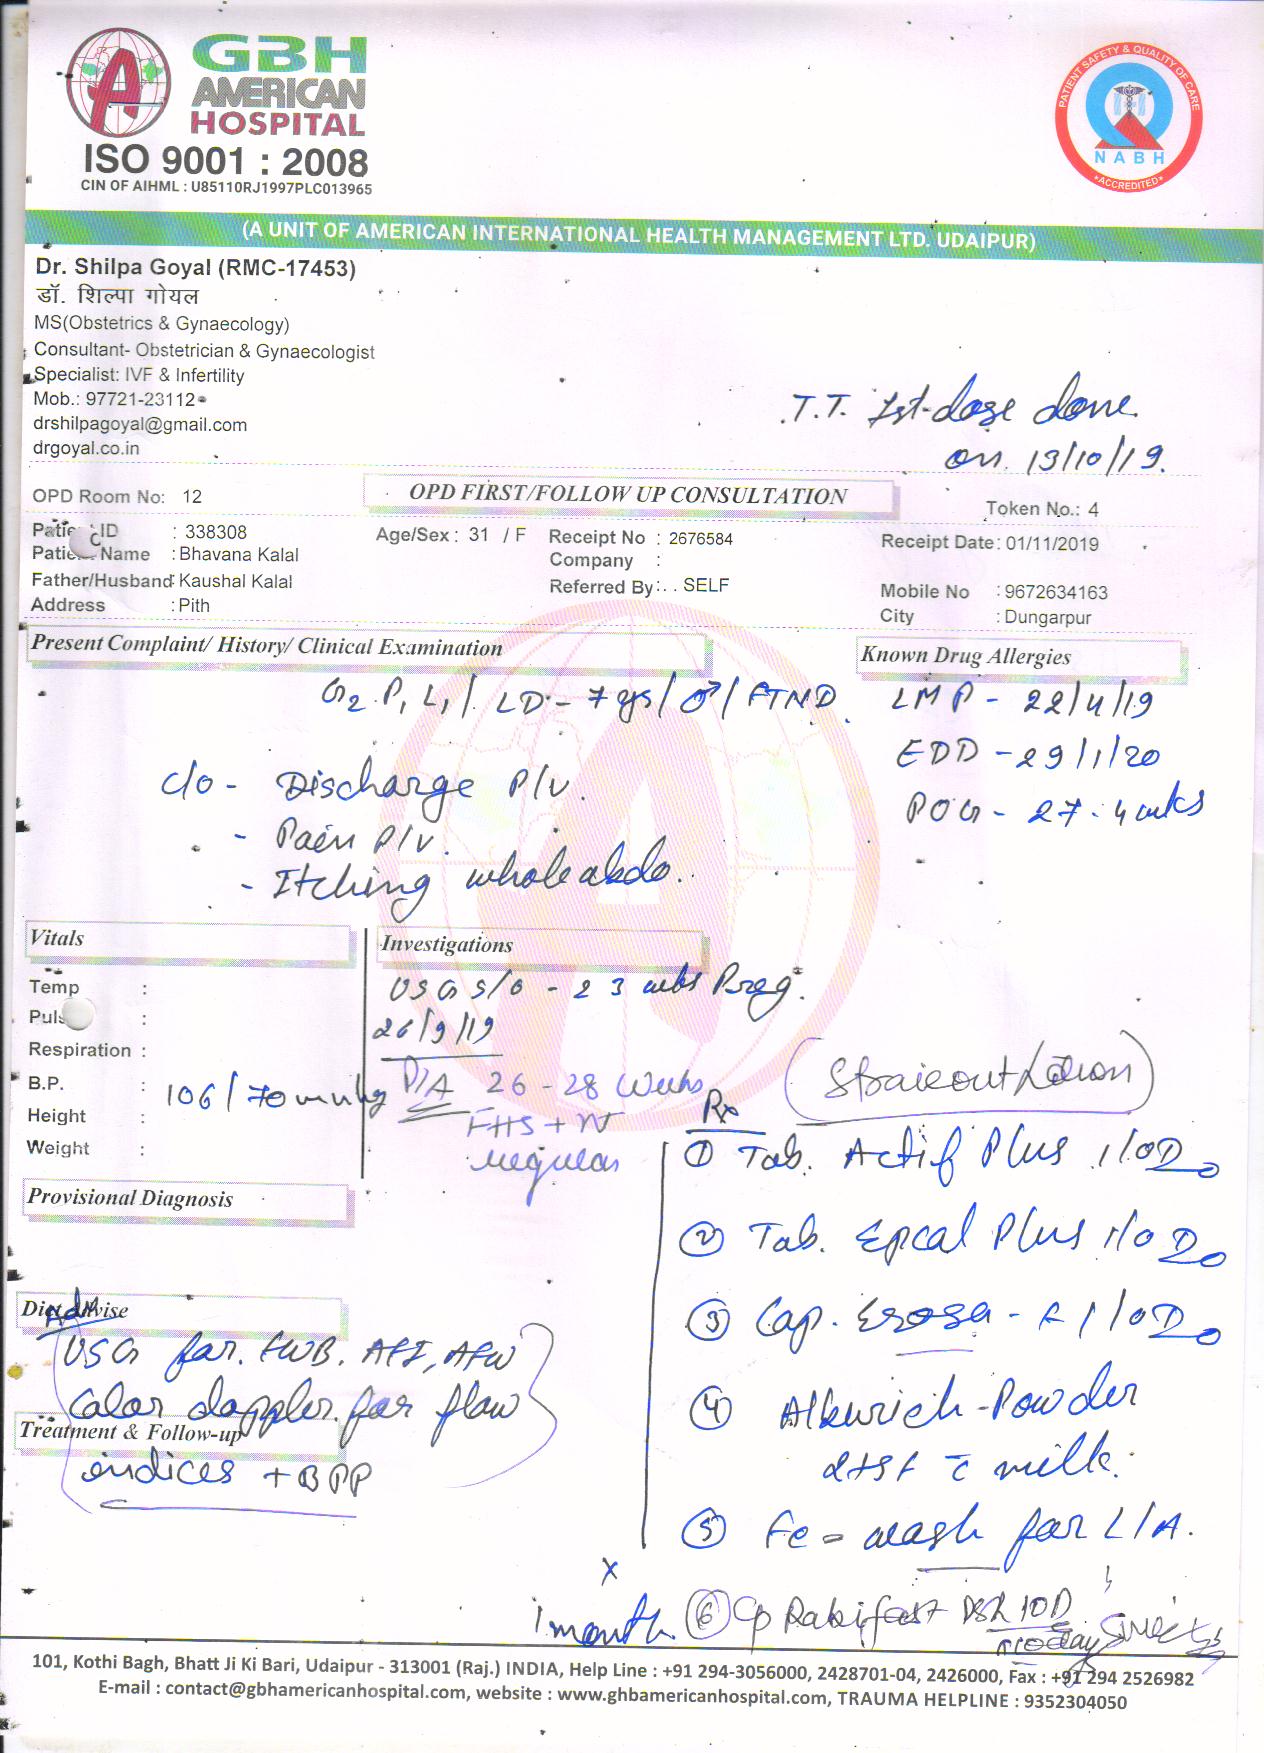 GBH
AMERICAN
HOSPITAL
ISO 9001 : 2008
CIN OF AIHML : U85110RJ1997PLC013965
PATIENT SAFETY & QUALITY OF CARE
NABH
ACCREDITED
(A UNIT OF AMERICAN INTERNATIONAL HEALTH MANAGEMENT LTD. UDAIPUR)
Dr. Shilpa Goyal (RMC-17453)
डॉ. शिल्पा गोयल
MS(Obstetrics & Gynaecology)
Consultant- Obstetrician & Gynaecologist
Specialist: IVF & Infertility
Mob.: 97721-23112
drshilpagoyal@gmail.com
drgoyal.co.in
T.T. 1st-dose done
on 13/10/19.
OPD Room No: 12
OPD FIRST/FOLLOW UP CONSULTATION
Token No.: 4
Patient ID : 338308 Age/Sex : 31 / F Receipt No : 2676584 Receipt Date: 01/11/2019
Patient Name : Bhavana Kalal Company :
Father/Husband: Kaushal Kalal Referred By: . . SELF Mobile No : 9672634163
Address : Pith City : Dungarpur
Present Complaint/ History/ Clinical Examination
Known Drug Allergies
G2 P1 L1 / LD - 7 ys / ♂ / FTND.
LMP - 22/4/19
EDD - 29/1/20
POG - 27.4 wks
c/o - Discharge P/v.
- Pain P/v.
- Itching whole abdo.
Vitals
Temp :
Pulse :
Respiration :
B.P. : 106/70 mmhg
Height :
Weight :
Investigations
USG S/O - 23 wks Preg.
26/9/19
P/A 26 - 28 Weeks
FHS + N
regular
Provisional Diagnosis
Diet Advise
Adv
USG for FWB, AFI, AFW
Color doppler for flow
Treatment & Follow-up
indices + BPP
Rx
① Tab. Actif Plus 1/OD
② Tab. Epcal Plus 1/OD
③ Cap. 1/OD
④ Powder
milk.
⑤ wash for L/A.
⑥ Cp Rabifast DSR 1OD
x
1 month
101, Kothi Bagh, Bhatt Ji Ki Bari, Udaipur - 313001 (Raj.) INDIA, Help Line : +91 294-3056000, 2428701-04, 2426000, Fax : +91 294 2526982
E-mail : contact@gbhamericanhospital.com, website : www.ghbamericanhospital.com, TRAUMA HELPLINE : 9352304050